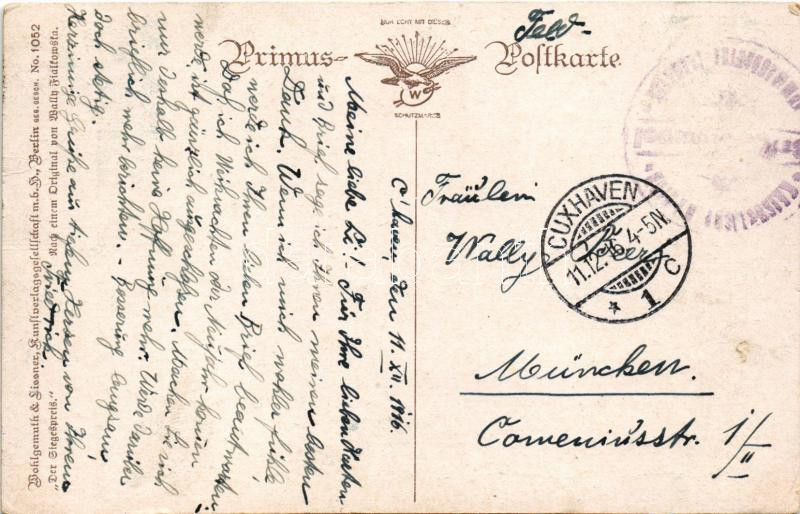 NUR ECHT MIT DIESER
Primus-
W
SCHUTZMARKE
Feld-
Postkarte.
C'haven, den 11. XII. 1916.
Meine liebe Li! - Für Ihre lieben Karten
und Brief sage ich Ihnen meinen besten
Dank. Wenn ich mich wohler fühle
werde ich Ihren lieben Brief beantworten.
Daß ich Weihnachten oder Neujahr kommen
werde, ist gänzlich ausgeschlossen. Machen Sie sich
nur deshalb keine Hoffnung mehr. Werde darüber
brieflich mehr berichten. - Besserung langsam
doch stetig.
Herzinnige Grüße aus tiefstem Herzen von Ihrem
Fräulein
Wally
München.
Comeniusstr. 1/II
CUXHAVEN
11.12.16. 4-5N.
* 1 c
Wohlgemuth & Lissner, Kunstverlagsgesellschaft m.b.H., Berlin GES. GESCH. No. 1052
"Der Siegespreis." Nach einem Original von Wally Fialkowska.